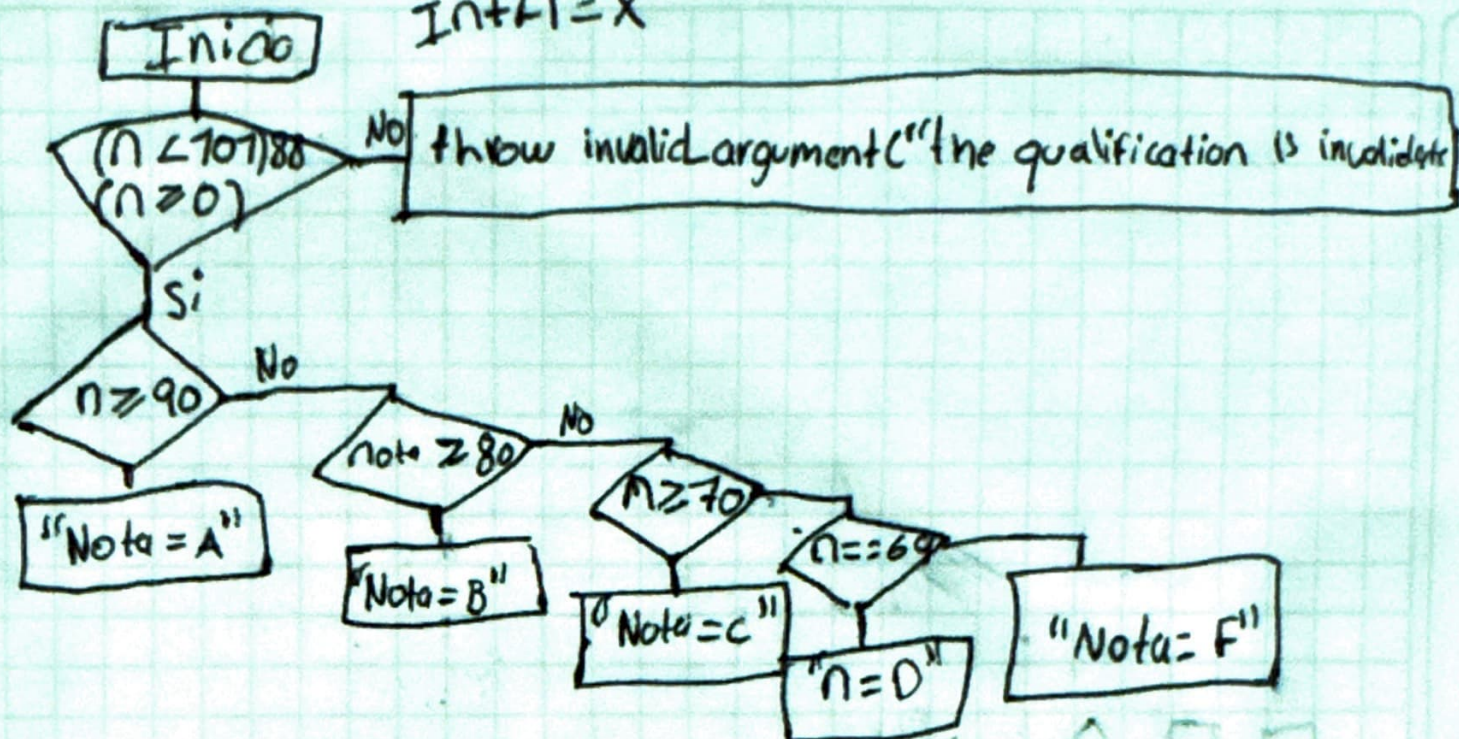 Inicio
(n < 101) &&
(n ≥ 0)
No
throw invalid argument ("the qualification is
Si
n ≥ 90
No
nota ≥ 80
No
n ≥ 70
n == 69
"Nota = A"
"Nota = B"
"Nota = C"
"n = D"
"Nota = F"